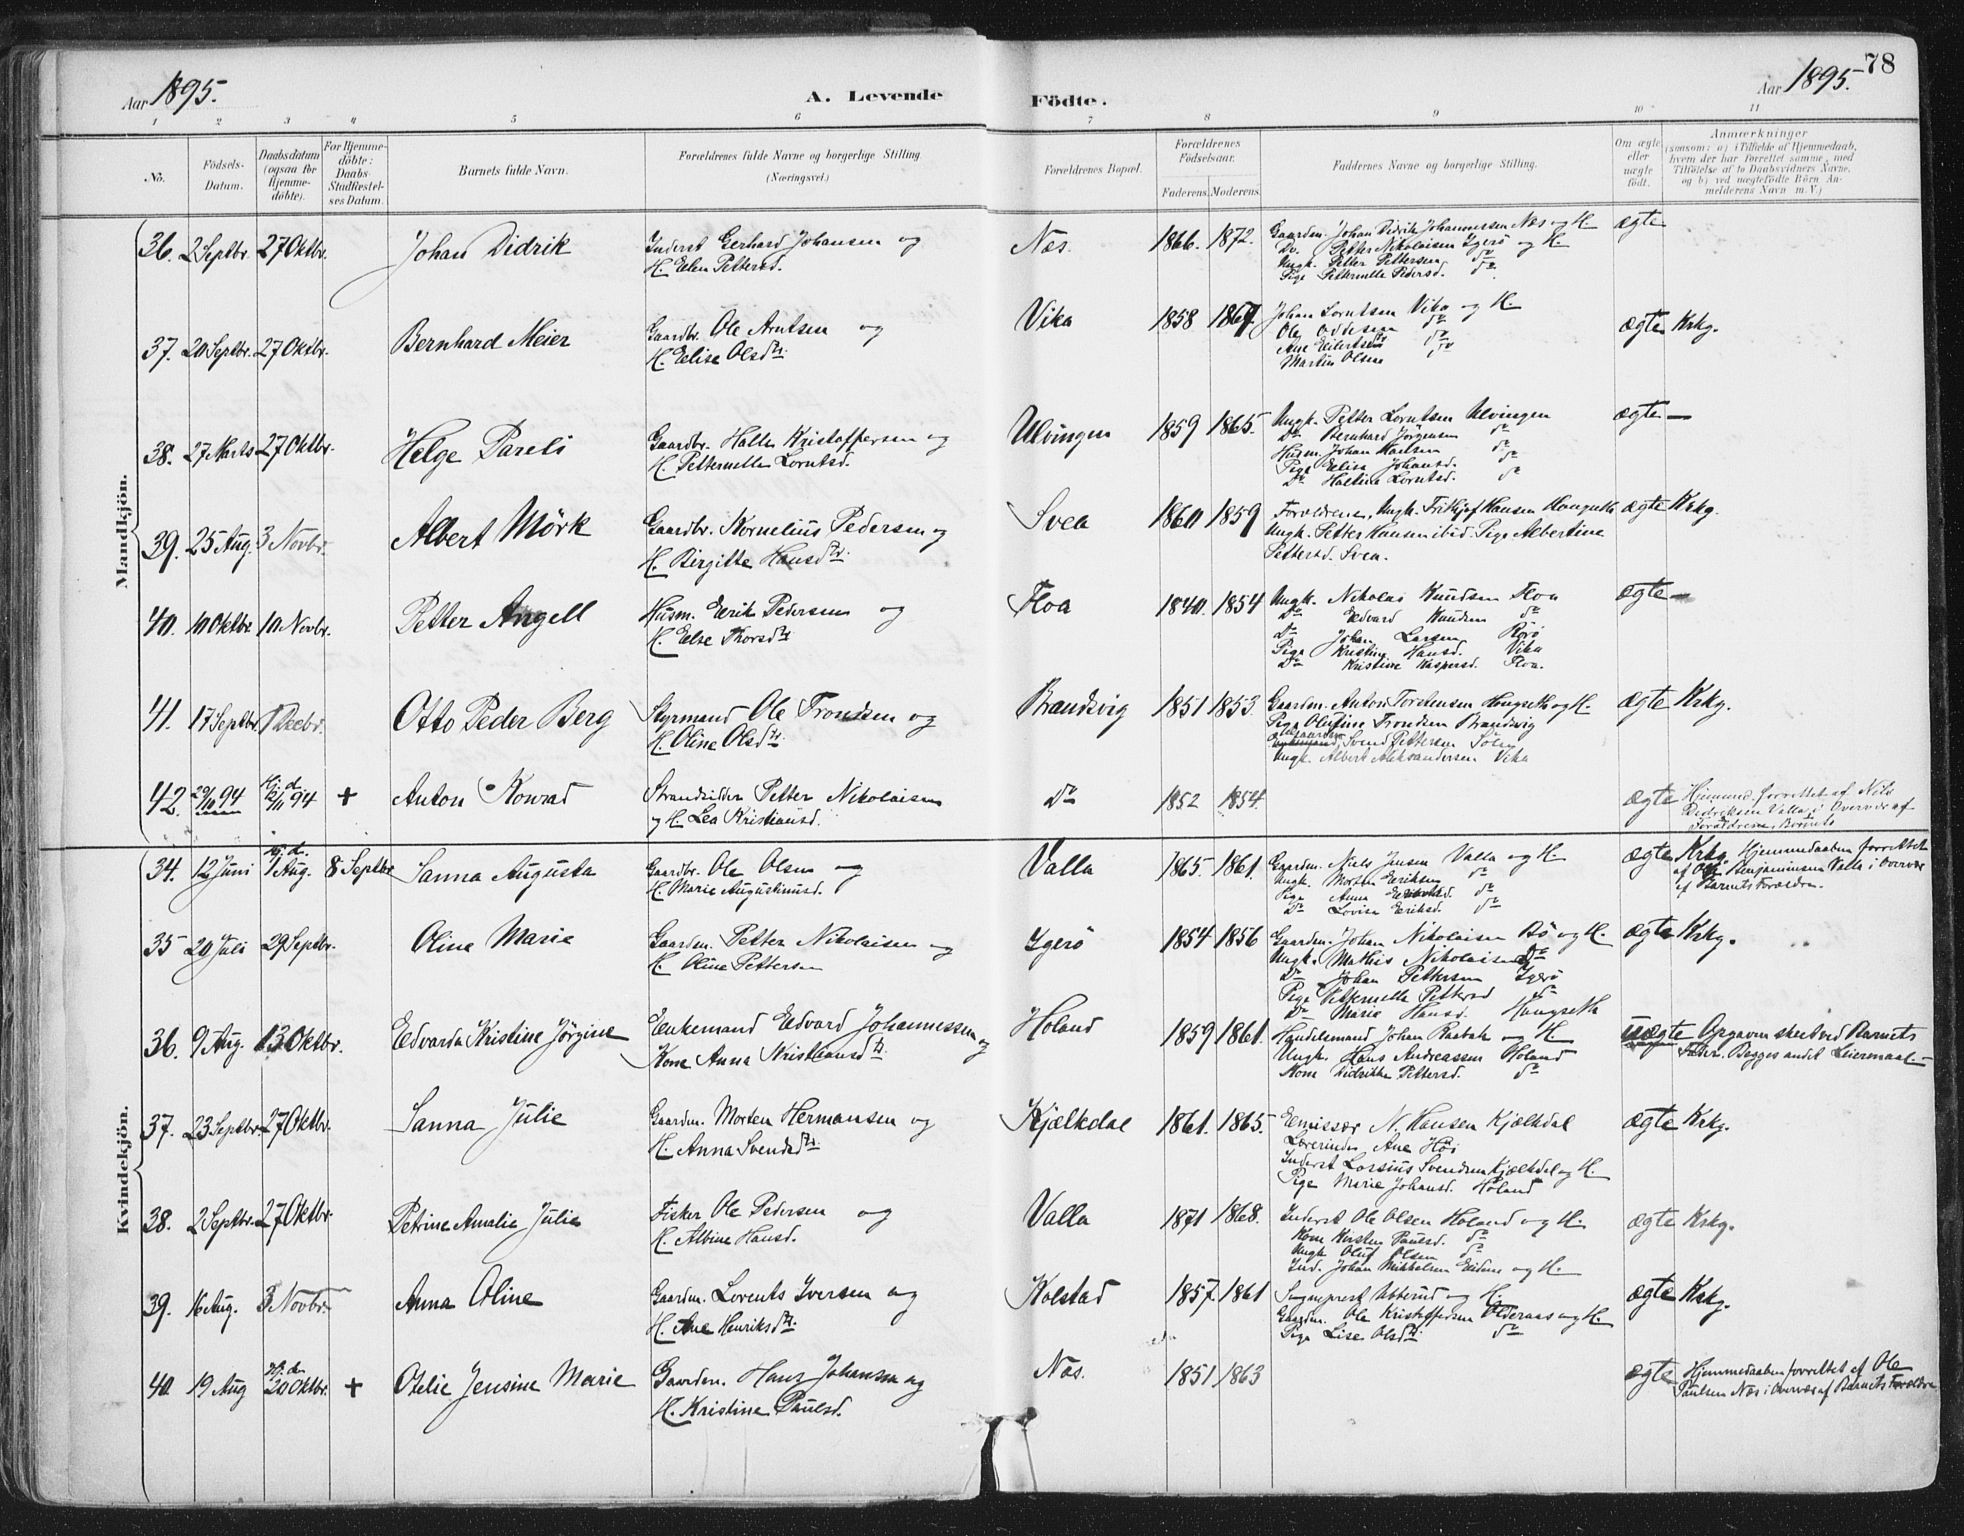 78
Aar 1895. A. Levende Födte. Aar 1895.
1 2 3 4 5 6 7 8 9 10 11
No. Födsels-Datum. Daabsdatum (ogsaa for Hjemme-döbte). For Hjemme-döbte: Daabs-Stadfæstel-ses Datum. Barnets fulde Navn. Forældrenes fulde Navne og borgerlige Stilling. (Næringsvei.) Forældrenes Bopæl. Forældrenes Födselsaar. Faderens. Moderens. Faddernes Navne og borgerlige Stilling. Om ægte eller uægte födt. Anmærkninger
(saasom: a) i Tilfælde af Hjemmedaab, hvem der har forrettet samme, med Tilföielse af to Daabsvidners Navne, og b) ved uægtefödte Börn Anmelderens Navn m. V.)
Mandkjön.
36. 2 Septbr. 27 Oktbr. Johan Didrik Inderst Gerhard Johansen og Næs. 1866. 1872. Gaardm. Johan Didrik Johannessen Næs og H. ægte
H. Elen Pettersd. Do. Petter Nikolaisen Ygerö og H.
Ungk. Petter Pettersen do
Pige Petternelle Pedersd. do
37. 20 Septbr. 27 Oktbr. Bernhard Meier Gaardbr. Ole Arntsen og Vika 1858 1867. Johan Lorntsen Vika og H. ægte Krkg.
H. Elise Olsdtr. Ole Oddesen do
Ane Eilertsdtr do
Martin Olsen do
38. 27 Marts 27 Oktbr. Helge Pareli Gaardbr. Halle Kristoffersen og Ulvingen 1859 1865. Ungk. Petter Lorntsen Ulvingen ægte —
H. Petternelle Lorntsd. Do Bernhard Jörgensen do
Husm. Johan Karlsen do
Pige Elisa Johansd. do
Do Haltine Lorntsd. do
39. 25 Aug. 3 Novbr. Albert Mörk Gaardbr. Kornelius Pedersen og Svea 1860 1859 Forældrene, Ungk. Frithjof Hansen Hongseth ægte Krkg.
H. Birgitte Hansdtr. Ungk. Petter Hansen ibid. Pige Albertine
Pettersd. Svea.
40. 10 Oktbr. 10 Novbr. Petter Angell Husm. Eerik Pedersen og Floa 1840. 1854 Ungk. Nikolai Knudsen Floa ægte —
H. Else Thorsdtr Do Edvard Knudsen do
Do Johan Larsen Rörö
Pige Kristine Hansd. Vika
Do Kristine Kaspersd. Floa.
41. 17 Septbr. 1 Decbr. Otto Peder Berg Styrmand Ole Trondsen og Brandsvig 1851 1853. Gaardm. Anton Torstensen Hongseth og H. ægte Krkg.
H. Oline Olsdtr. Pige Olufine Trondsen Brandsvig
Svend Pettersen
Ungk. Albert Aleksandersen Vika
42. 29/10 94 Hj. d. 12/11 94 + Anton Konrad Strandsidder Petter Nikolaisen do 1852 1854. ægte Hjemmed. forrettet af Nils
og H. Lea Kristiansd. Didriksen Valla i Overvær af
Forældrene.
Kvindekjön.
34. 12 Juni Hj. d. 1 Aug. 8 Septbr. Sanna Augusta Gaardbr. Ole Olsen og Valla 1865. 1861. Gaardm. Niels Jensen Valla og H. ægte Krkg. Hjemmedaaben forrettet
H. Marie Augustinusd. Ungk. Morten Eriksen do af Ole Benjaminsen Valla i Overvær
Pige Anna do af Barnets Forældre.
Do Lovise Eriksd. do
35 20 Juli 29 Septbr. Oline Marie Gaardm. Petter Nikolaisen og Ygerö 1854 1856 Gaardm. Johan Nikolaisen Bö og H. ægte Krkg.
H. Oline Pettersen Ungk. Mathis Nikolaisen do
Do Johan Pettersen Ygerö
Pige Petternella Pettersd do
Do Marie Hansd. Hongseth
36. 9 Aug. 13 Oktbr. Edvarda Kristine Jörgine Enkemand Edvard Johannessen og Holand 1859 1861. Handelsmand Johan Raabak og H. uægte Opgaven skeet ved Barnets
Kone Anna Kristiansdtr Ungk. Hans Andreassen Holand Fader. Begges andet Leiermaal.
Kone Didrikke Pettersd. do
37. 23 Septbr. 27 Oktbr. Sanna Julie Gaardm. Morten Hermansen og Kjælkdal 1861. 1865. Emissær N. Hansen Kjælkdal ægte Krkg.
H. Anna Svendsdtr. Lærerinde Ane Höi
Inderst Lorsius Svendsen Kjælkdal og H.
Pige Marie Johansd. Holand
38. 2 Septbr. 27 Oktbr. Petrine Amalie Julie Fisker Ole Pedersen og Valla 1871 1868. Inderst Ole Olsen Holand og H. ægte Krkg.
H. Albine Hansd. Kone Kirsten Paulsd. do
Ungk Oluf Olsen do
Ind. Johan Mikkelsen Eidem og H.
39. 16 Aug. 3 Novbr. Anna Oline Gaardm. Lorents Iversen og Kolstad 1857. 1861 Sogneprest Utterud og H. ægte Krkg.
H. Ane Henriksdtr. Gaardm. Ole Kristoffersen Olderaas og H.
Pige Lise Olsdtr. do
40. 19 Aug Hj. d. 20 Oktbr. + Otelie Jensine Marie Gaardm. Hans Johansen og Næs. 1851 1863 ægte Hjemmedaaben forrettet af Ole
H. Kristine Paulsd. Paulsen Næs i Overvær af Barnets Forældre